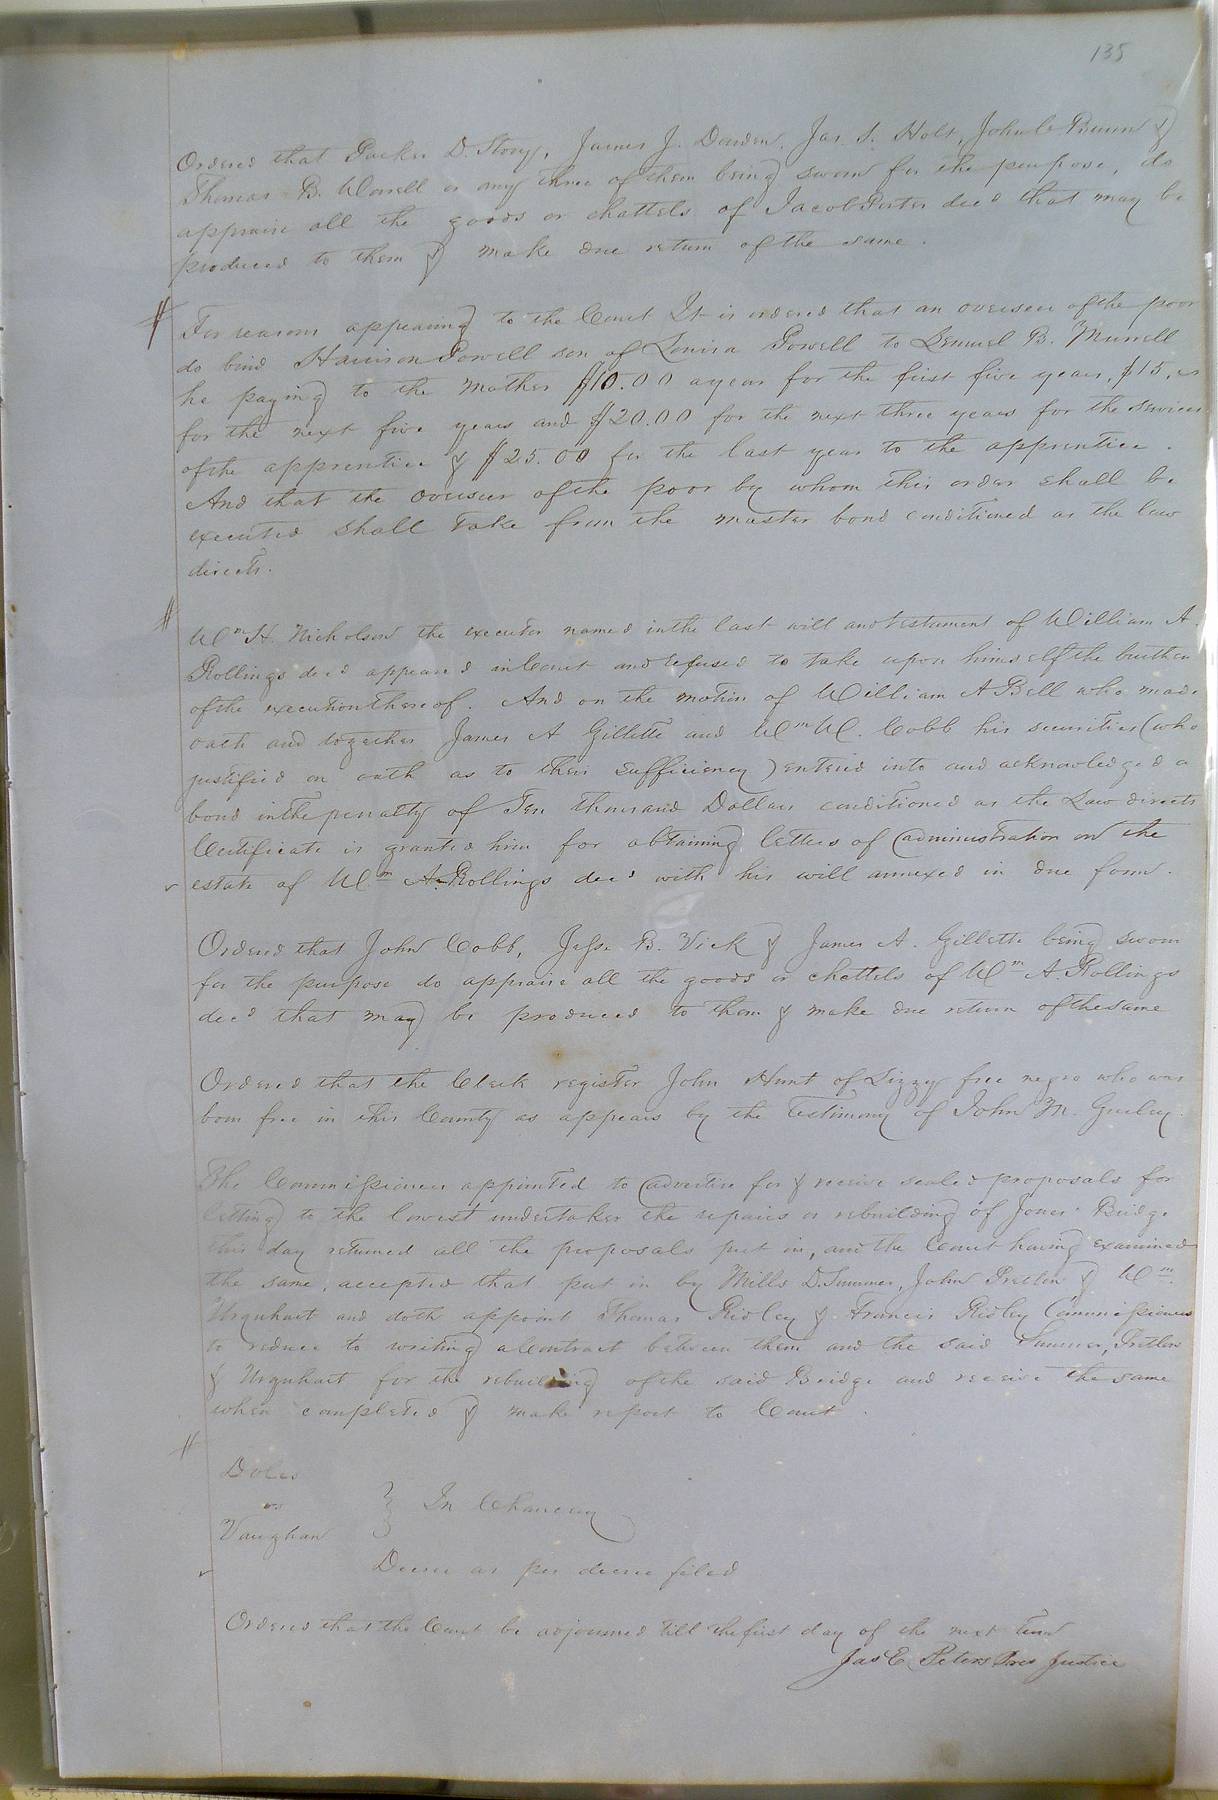 135
Ordered that Parker D. Story, James J. Darden, Jas. S. Holt, John C Brown &
Thomas B. Worrell or any three of them being sworn for the purpose, do
appraise all the goods or chattels of Jacob Porter decd that may be
produced to them & make due return of the same.
For reasons appearing to the Court It is ordered that an overseer of the poor
do bind Harrison Powell son of Louisa Powell to Lemuel B. Murrell
he paying to the mother $10.00 a year for the first five years, $15.00
for the next five years and $20.00 for the next three years for the services
of the apprentice & $25.00 for the last year to the apprentice.
And that the overseer of the poor by whom this order shall be
executed shall take from the master bond conditioned as the law
directs.
Wm H. Nicholson the executor named in the last will and testament of William A.
Rollings decd appeared in Court and refused to take upon himself the burthen
of the execution thereof. And on the motion of William A Bell who made
oath and together James A Gillette and Wm W. Cobb his securities (who
justified on oath as to their sufficiency) entered into and acknowledged a
bond in the penalty of Ten thousand Dollars conditioned as the Law directs
Certificate is granted him for obtaining letters of administration on the
estate of Wm A. Rollings decd with his will annexed in due form.
Ordered that John Cobb, Jesse B. Vick & James A. Gillette being sworn
for the purpose do appraise all the goods or chattels of Wm A. Rollings
decd that may be produced to them & make due return of the same
Ordered that the Clerk register John Hunt of Lizzy free negro who was
born free in this County as appears by the testimony of John M. Gurley.
The Commissioners appointed to advertise for & receive sealed proposals for
letting to the lowest undertaker the repairs or rebuilding of Jones' Bridge
this day returned all the proposals put in, and the Court having examined
the same, accepted that put in by Mills D. Summer, John Pretlow & Wm
Urquhart and doth appoint Thomas Ridley & Francis Ridley Commissioners
to reduce to writing a Contract between them and the said Summer, Pretlow
& Urquhart for the rebuilding of the said Bridge and receive the same
when completed & make report to Court.
Doles
vs
Vaughan
} In Chancery
Decree as per decree filed
Ordered that the Court be adjourned till the first day of the next term
Jas E. Peters Pres Justice